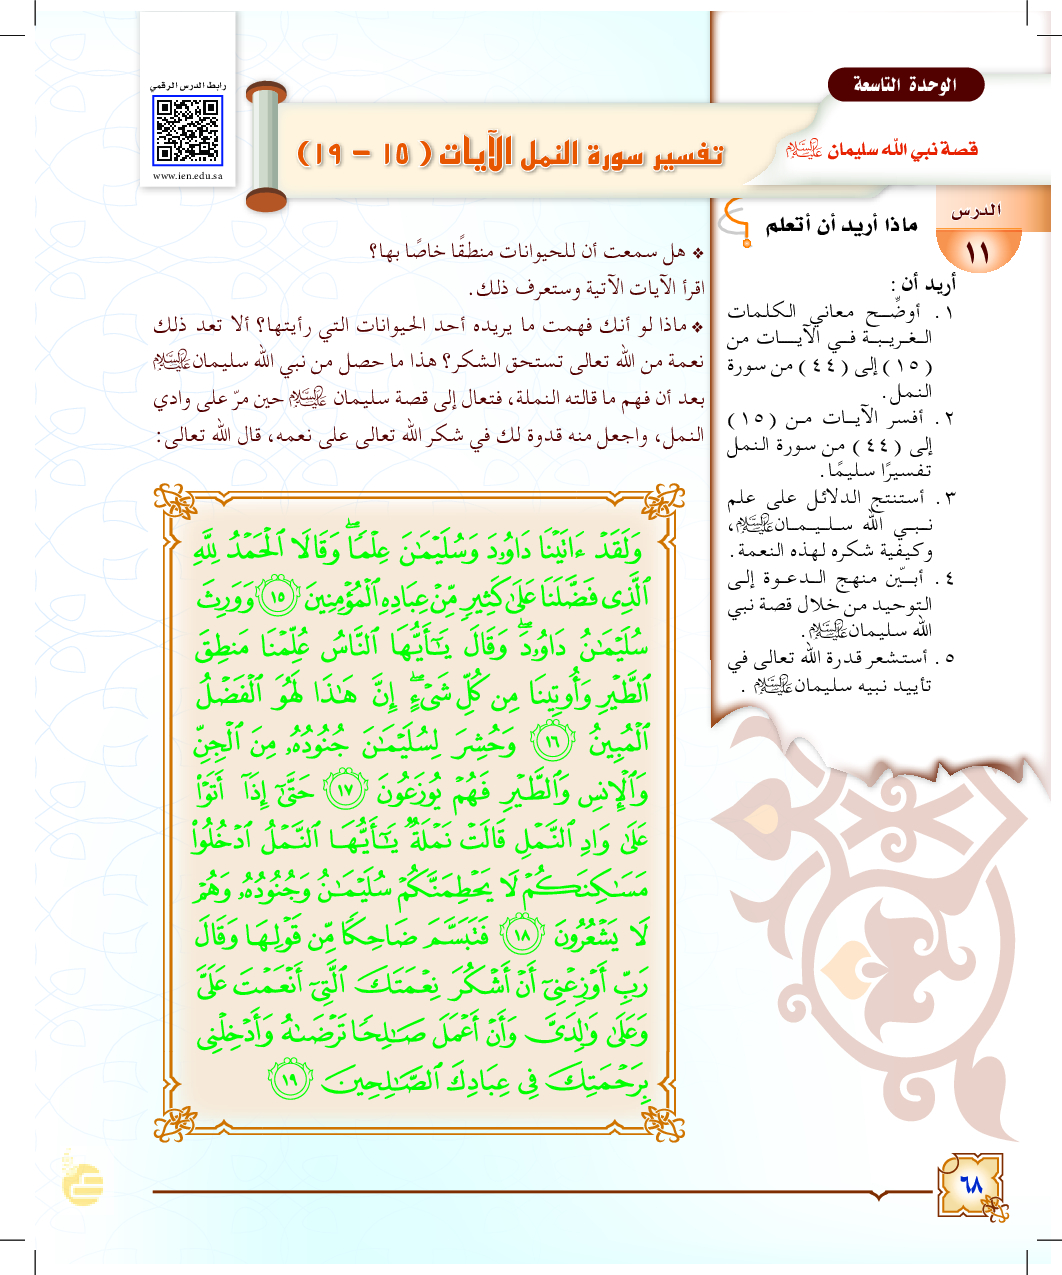 الوحدة التاسعة
قصة نبي الله سليمان عليه السلام
رابط الدرس الرقمي
www.ien.edu.sa
تفسير سورة النمل الآيات (١٥ - ١٩)
الدرس
١١
ماذا أريد أن أتعلم
أريد أن :
١. أوضِّح معاني الكلمات
الغريبة في الآيات من
(١٥) إلى (٤٤) من سورة
النمل.
٢. أفسر الآيات من (١٥)
إلى (٤٤) من سورة النمل
تفسيرًا سليمًا.
٣. أستنتج الدلائل على علم
نبي الله سليمان عليه السلام،
وكيفية شكره لهذه النعمة.
٤. أبيّن منهج الدعوة إلى
التوحيد من خلال قصة نبي
الله سليمان عليه السلام.
٥. أستشعر قدرة الله تعالى في
تأييد نبيه سليمان عليه السلام .
❖ هل سمعت أن للحيوانات منطقًا خاصًا بها؟
اقرأ الآيات الآتية وستعرف ذلك.
❖ ماذا لو أنك فهمت ما يريده أحد الحيوانات التي رأيتها؟ ألا تعد ذلك
نعمة من الله تعالى تستحق الشكر؟ هذا ما حصل من نبي الله سليمان عليه السلام
بعد أن فهم ما قالته النملة، فتعال إلى قصة سليمان عليه السلام حين مرّ على وادي
النمل، واجعل منه قدوة لك في شكر الله تعالى على نعمه، قال الله تعالى:
وَلَقَدْ ءَاتَيْنَا دَاوُۥدَ وَسُلَيْمَٰنَ عِلْمًاۖ وَقَالَا ٱلْحَمْدُ لِلَّهِ
ٱلَّذِى فَضَّلَنَا عَلَىٰ كَثِيرٍ مِّنْ عِبَادِهِ ٱلْمُؤْمِنِينَ ١٥ وَوَرِثَ
سُلَيْمَٰنُ دَاوُۥدَۖ وَقَالَ يَٰٓأَيُّهَا ٱلنَّاسُ عُلِّمْنَا مَنطِقَ
ٱلطَّيْرِ وَأُوتِينَا مِن كُلِّ شَىْءٍۖ إِنَّ هَٰذَا لَهُوَ ٱلْفَضْلُ
ٱلْمُبِينُ ١٦ وَحُشِرَ لِسُلَيْمَٰنَ جُنُودُهُۥ مِنَ ٱلْجِنِّ
وَٱلْإِنسِ وَٱلطَّيْرِ فَهُمْ يُوزَعُونَ ١٧ حَتَّىٰٓ إِذَآ أَتَوْا۟
عَلَىٰ وَادِ ٱلنَّمْلِ قَالَتْ نَمْلَةٌ يَٰٓأَيُّهَا ٱلنَّمْلُ ٱدْخُلُوا۟
مَسَٰكِنَكُمْ لَا يَحْطِمَنَّكُمْ سُلَيْمَٰنُ وَجُنُودُهُۥ وَهُمْ
لَا يَشْعُرُونَ ١٨ فَتَبَسَّمَ ضَاحِكًا مِّن قَوْلِهَا وَقَالَ
رَبِّ أَوْزِعْنِىٓ أَنْ أَشْكُرَ نِعْمَتَكَ ٱلَّتِىٓ أَنْعَمْتَ عَلَىَّ
وَعَلَىٰ وَٰلِدَىَّ وَأَنْ أَعْمَلَ صَٰلِحًا تَرْضَىٰهُ وَأَدْخِلْنِى
بِرَحْمَتِكَ فِى عِبَادِكَ ٱلصَّٰلِحِينَ ١٩
٦٨